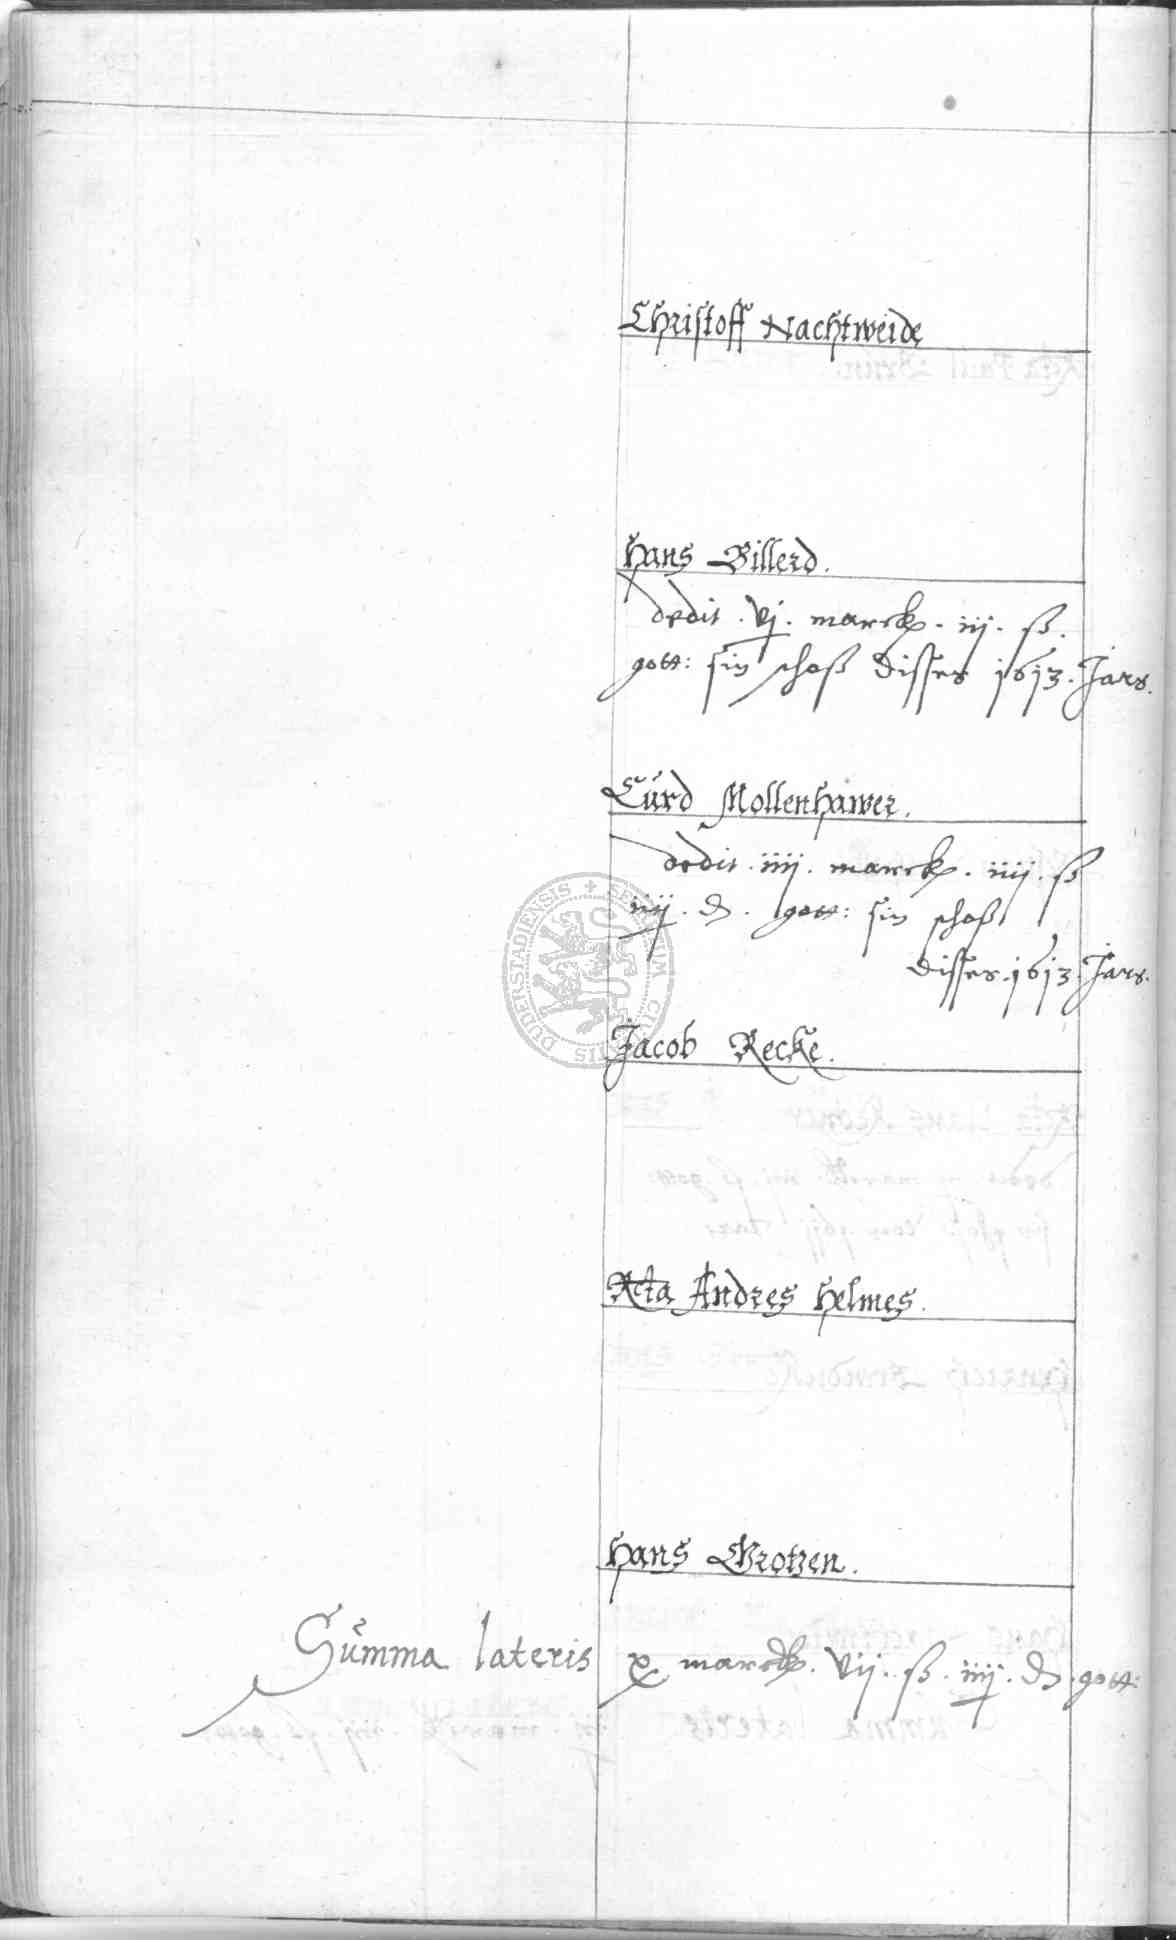 Christoff Nachtweide
Hans Billerd.
dedit . vj . marck . iij . ß .
gott: sin schoß disses 1613. Jars.
Curd Mollenhawer.
dedit . iiij . marck . iiij . ß
iiij . ₰ . gott: sin schoß
disses . 1613 . Jars.
Jacob Recke.
Rcta Andres Helmes.
Hans Grotzen.
Summa lateris x marck . vij . ß . iiij . ₰ . gott:
SIGILLUM CIVITATIS DUDERSTADIENSIS